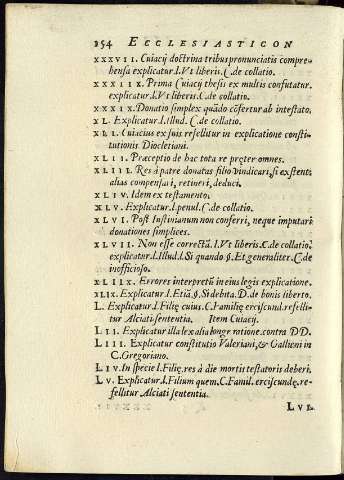 154 ECCLESIASTICON
XXXVII. Cuiacij doctrina tribus pronunciatis compre-
hensa explicatur.l.Vt liberis.C.de collatio.
XXXIIX. Prima Cuiacij thesis ex multis confutatur.
explicatur.l.Vt liberis.C.de collatio.
XXXIX. Donatio simplex quādo cōfertur ab intestato.
XL. Explicatur.l.Illud.C.de collatio.
XLI. Cuiacius ex suis refellitur in explicatione consti-
tutionis Diocletiani.
XLII. Præceptio de hac tota re præter omnes.
XLIII. Res à patre donatas filio vindicari, si extent:
aliàs compensari, retineri, deduci.
XLIV. Idem ex testamento.
XLV. Explicatur.l.penul.C.de collatio.
XLVI. Post Iustinianum non conferri, neque imputari
donationes simplices.
XLVII. Non esse correctā.l.Vt liberis.C.de collatio.
explicatur.l.Illud.l.Si quando §.Et generaliter.C.de
inofficioso.
XLIIX. Errores interpretū in eius legis explicatione.
XLIX. Explicatur.l.Etiā.§.Si debita.D.de bonis liberto.
L. Explicatur.l.Filiæ cuius.C.Familiæ erciscund.refelli-
tur Alciati sententia. Item Cuiacij.
LII. Explicatur illa lex alia longe ratione.contra DD.
LIII. Explicatur constitutio Valeriani, & Gallieni in
C.Gregoriano.
LIV. In specie l.Filiæ.res à die mortis testatoris deberi.
LV. Explicatur.l.Filium quem.C.Famil.erciscundæ.re-
fellitur Alciati sententia.
LVI.